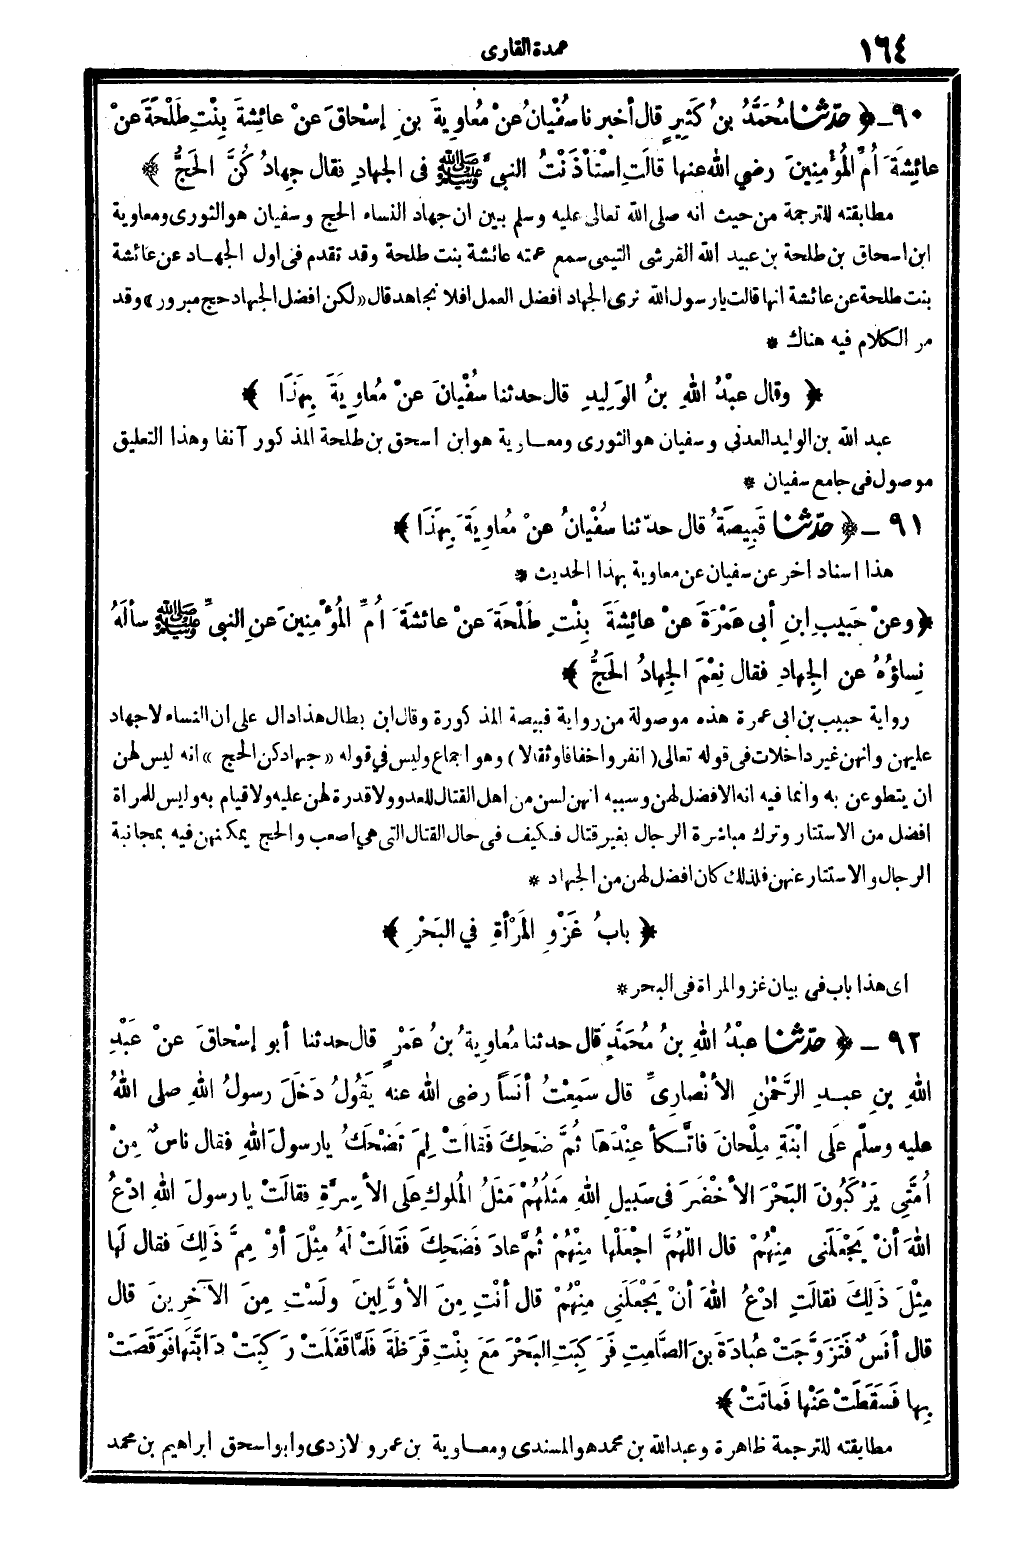 ١٦٤
عمدة القارى
٩٠ - ﴿ حدّثنا مُحَمَّدُ بنُ كَثِيرٍ قال أخبرنا سُفْيانُ عنْ مُعاوِيةَ بنِ إسْحاقَ عنْ عائِشةَ بِنْتِ طَلْحَةَ عنْ
عائِشَةَ أُمِّ المُؤْمِنِينَ رضي الله عنها قالَتِ اسْتَأْذَنْتُ النبىَّ ﷺ فى الجهادِ فقال جِهادُ كُنَّ الحَجُّ ﴾
مطابقته للترجمة من حيث انه صلى الله تعالى عليه وسلم بين ان جهاد النساء الحج وسفيان هو الثورى ومعاوية
ابن اسحاق بن طلحة بن عبيد الله القرشى التيمى سمع عمته عائشة بنت طلحة وقد تقدم فى اول الجهاد عن عائشة
بنت طلحة عن عائشة انها قالت يارسول الله نرى الجهاد افضل العمل افلا نجاهد قال «لكن افضل الجهاد حج مبرور» وقد
مر الكلام فيه هناك *
﴿ وقال عبْدُ اللهِ بنُ الوَلِيدِ قال حدثنا سُفْيانَ عنْ مُعاوِيَةَ بِهَذَا ﴾
عبد الله بن الوليد العدنى وسفيان هو الثورى ومعاوية هو ابن اسحق بن طلحة المذكور آنفا وهذا التعليق
موصول فى جامع سفيان *
٩١ - ﴿ حدّثنا قَبِيصَةُ قال حدّثنا سُفْيانُ عنْ مُعاوِيَةَ بِهَذَا ﴾
هذا اسناد آخر عن سفيان عن معاوية بهذا الحديث *
﴿ وعنْ حَبِيبِ ابنِ أبى عَمْرَةَ عنْ عائِشةَ بِنْتِ طَلْحَةَ عنْ عائشَةَ أُمِّ المُؤْمِنِينَ عنِ النبىِّ ﷺ سألَهُ
نِساؤُهُ عنِ الجِهادِ فقال نِعْمَ الجِهادُ الحَجُّ ﴾
رواية حبيب بن ابى عمرة هذه موصولة من رواية قبيصة المذكورة وقال ابن بطال هذا دال على ان النساء لا جهاد
عليهن وانهن غير داخلات فى قوله تعالى (انفروا خفافا وثقالا) وهو اجماع وليس في قوله «جهادكن الحج» انه ليس لهن
ان يتطوعن به وانما فيه انه الافضل لهن وسببه انهن لسن من اهل القتال للعدو ولا قدرة لهن عليه ولا قيام به وليس للمرأة
افضل من الاستتار وترك مباشرة الرجال بغير قتال فكيف فى حال القتال التى هي اصعب والحج يمكنهن فيه بمجانبة
الرجال والاستتار عنهن فلذلك كان افضل لهن من الجهاد *
﴿ بابُ غَزْوِ المَرْأةِ في البَحْرِ ﴾
اى هذا باب فى بيان غزو المراة فى البحر *
٩٢ - ﴿ حدّثنا عبْدُ اللهِ بنُ مُحَمَّدٍ قال حدثنا مُعاوِيةُ بنُ عَمْرٍ قال حدثنا أبو إسْحاقَ عنْ عَبْدِ
اللهِ بنِ عبدِ الرَّحْمٰنِ الأنْصارِىِّ قال سَمِعْتُ أنَساً رضى الله عنه يَقُولُ دَخَلَ رسولُ اللهِ صلى اللهُ
عليه وسلّم علَى ابْنَةِ مِلْحانَ فاتَّكأَ عِنْدَهَا ثُمَّ ضَحِكَ فَقالَتْ لِمَ تَضْحَكُ يارسولَ اللهِ فقال ناسٌ مِنْ
أُمَّتِى يَرْكَبُونَ البَحْرَ الأخْضَرَ فى سَبِيلِ اللهِ مَثَلُهُمْ مَثَلُ المُلوكِ عَلَى الأسِرَّةِ فقالَتْ يارسولَ اللهِ ادْعُ
اللهَ أنْ يَجْعَلَنى مِنْهُمْ قال اللّهُمَّ اجْعَلْها مِنْهُمْ ثُمَّ عادَ فَضَحِكَ فَقالَتْ لَهُ مِثْلَ أوْ مِمَّ ذَلِكَ فقال لَها
مِثْلَ ذَلِكَ فقالَتِ ادْعُ اللهَ أنْ يَجْعَلَنِي مِنْهُمْ قال أنْتِ مِنَ الأوَّلِينَ ولَسْتِ مِنَ الآخِرِينَ قال
قال أنَسٌ فَتَزَوَّجَتْ عُبادَةَ بنَ الصَّامِتِ فَرَكِبَتِ البَحْرَ مَعَ بِنْتِ قَرَظَةَ فَلَمَّا قَفَلَتْ رَكِبَتْ دَابَّتَها فَوَقَصَتْ
بِها فَسَقَطَتْ عَنْها فَماتَتْ ﴾
مطابقته للترجمة ظاهرة وعبدالله بن محمد هو المسندى ومعاوية بن عمرو لازدى وابو اسحق ابراهيم بن محمد